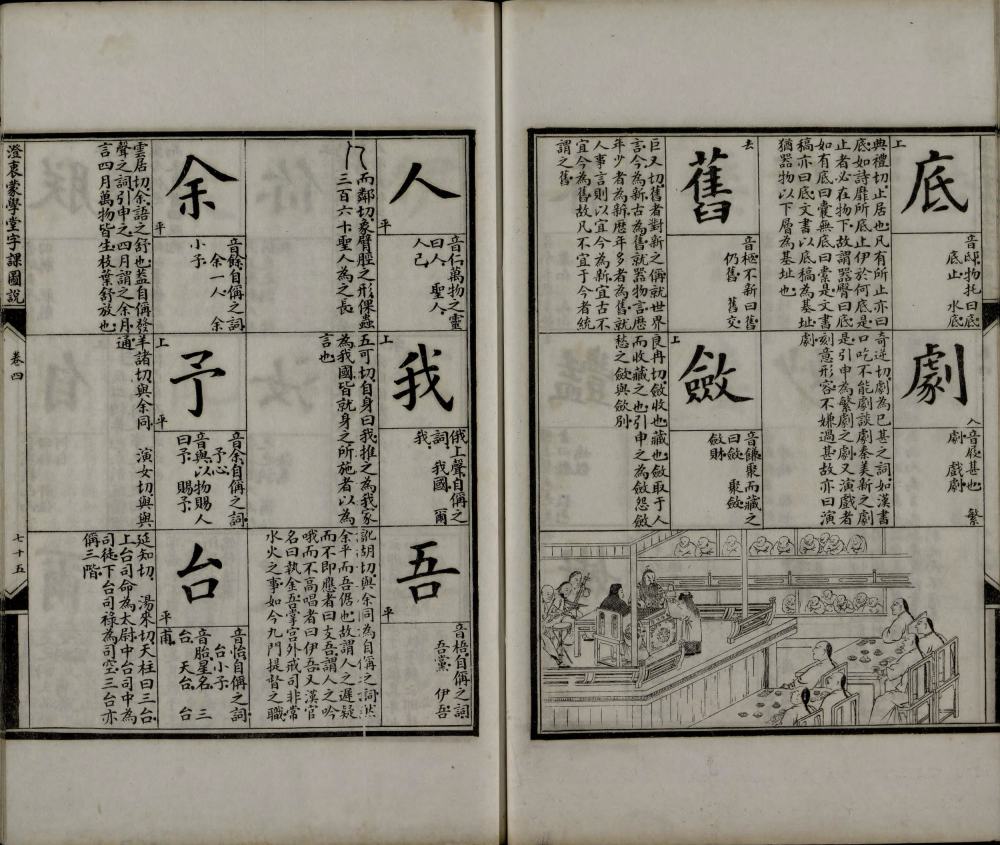 底
上
音邸物托曰底
底止　水底
典禮切止居也凡有所止亦曰
底如詩靡所底止伊於何底是
止者必在物下故謂器臀曰底
如有底曰囊無底曰橐是文書
稿亦曰底文書以底稿為基址
猶器物以下層為基址也
舊
去
音柩不新曰舊
仍舊　舊交
巨又切舊者對新之稱就世界
言今為新古為舊就器物言歷
年少者為新歷年多者為舊就
人事言則以宜今為新宜古不
宜今為舊故凡不宜于今者統
謂之舊
劇
入
音屐甚也　繁
劇　戲劇
奇逆切劇為已甚之詞如漢書
口吃不能劇談劇秦美新之劇
是引申為繁劇之劇又演戲者
刻意形容不嫌過甚故亦曰演
劇
斂
上
音臉聚而藏之
曰斂　聚斂
斂財
良冉切斂收也藏也斂取于人
而收藏之也引申之為斂怨斂
愁之斂與斂別
人
平
音仁萬物之靈
曰人　聖人
人己
而鄰切象臂脛之形倮蟲
三百六十聖人為之長
我
上
俄上聲自稱之
詞　我國　爾
我
五可切自身曰我推之為我家
為我國皆就身之所施者以為
言也
吾
平
音梧自稱之詞
吾黨　伊吾
訛胡切與余同為自稱之詞然
余平而吾倨也故謂人之遲疑
而不即應者曰支吾謂人之吟
哦而不高唱者曰伊吾又漢官
名曰執金吾掌宮外戒司非常
水火之事如今九門提督之職
余
平
音餘自稱之詞
余一人　余
小子
雲居切余語之舒也蓋自稱發
聲之詞引申之四月謂之余月
言四月萬物皆生枝葉舒放也
予
上
平
音余自稱之詞
予心
音與以物賜人
曰予　賜予
羊諸切與余同　演女切與與
通
台
平
音怡自稱之詞
台小子
音胎星名　三
台　天台　台
甫
延知切　湯來切天柱曰三台
上台司命為太尉中台司中為
司徒下台司祿為司空三台亦
稱三階
澄衷蒙學堂字課圖說
卷四
七十五